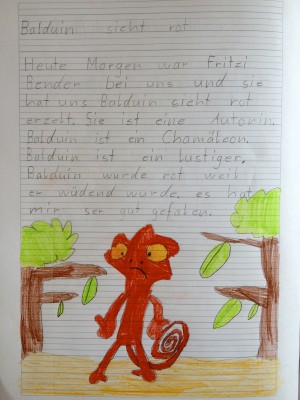 Balduin sieht rot
Heute Morgen war Fritzi
Bender bei uns und sie
hat uns Balduin sieht rot
erzelt. Sie ist eine Autorin.
Balduin ist ein Chamäleon.
Balduin ist ein lustiger.
Balduin wurde rot weil
er wüdend wurde. es hat
mir ser gut gefalen.